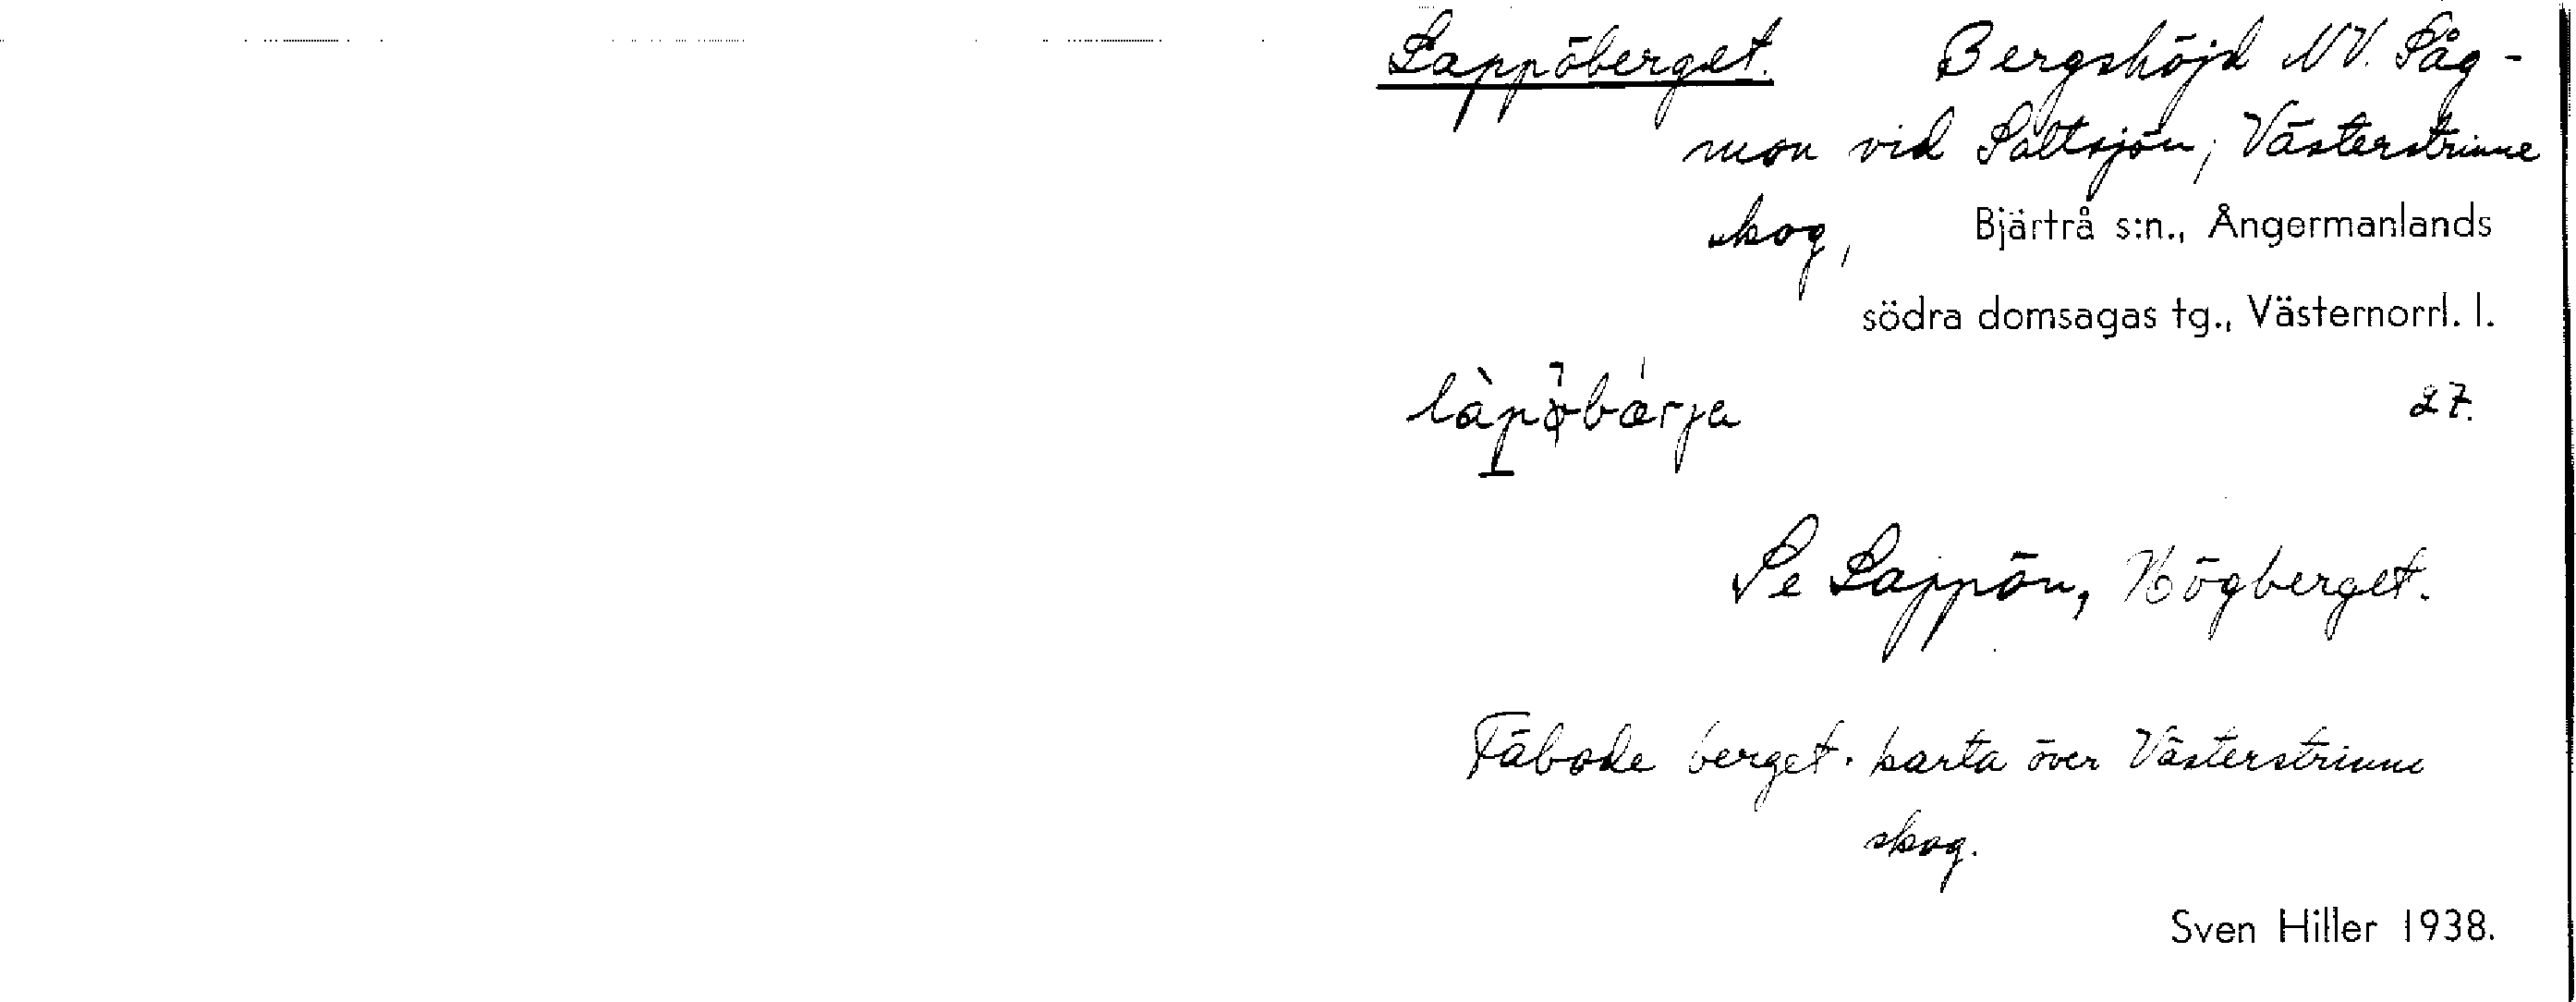 Lappöberget. Bergshöjd NV. Såg-
mon vid Saltsjön, Västerstrinne
skog, Bjärtrå s:n., Ångermanlands
södra domsagas tg., Västernorrl. l.
27.
Se Lappön, Högberget.
Fäbodeberget. karta över Västerstrinne
skog.
Sven Hiller 1938.